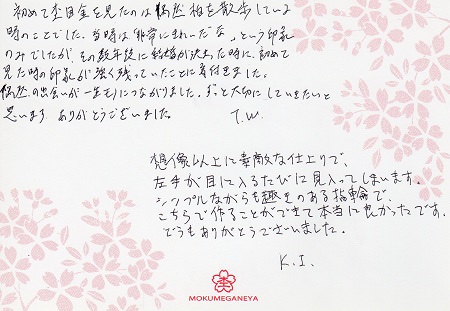 初めて杢目金を見たのは偶然 柏を散歩している
時のことでした。当時は「非常にきれいだな」という印象
のみでしたが その数年後に結婚が決まった時に、初めて
見た時の印象が強く残っていたことに気付きました。
偶然の出会いが一生モノにつながりました。ずっと大切にしていきたいと
思います ありがとうございました。 T.W.
想像以上に素敵な仕上りで、
左手が目に入るたびに見入ってしまいます。
シンプルながらも趣きのある指輪で、
こちらで作ることができて本当に良かったです。
どうもありがとうございました。
K.I.
MOKUMEGANEYA